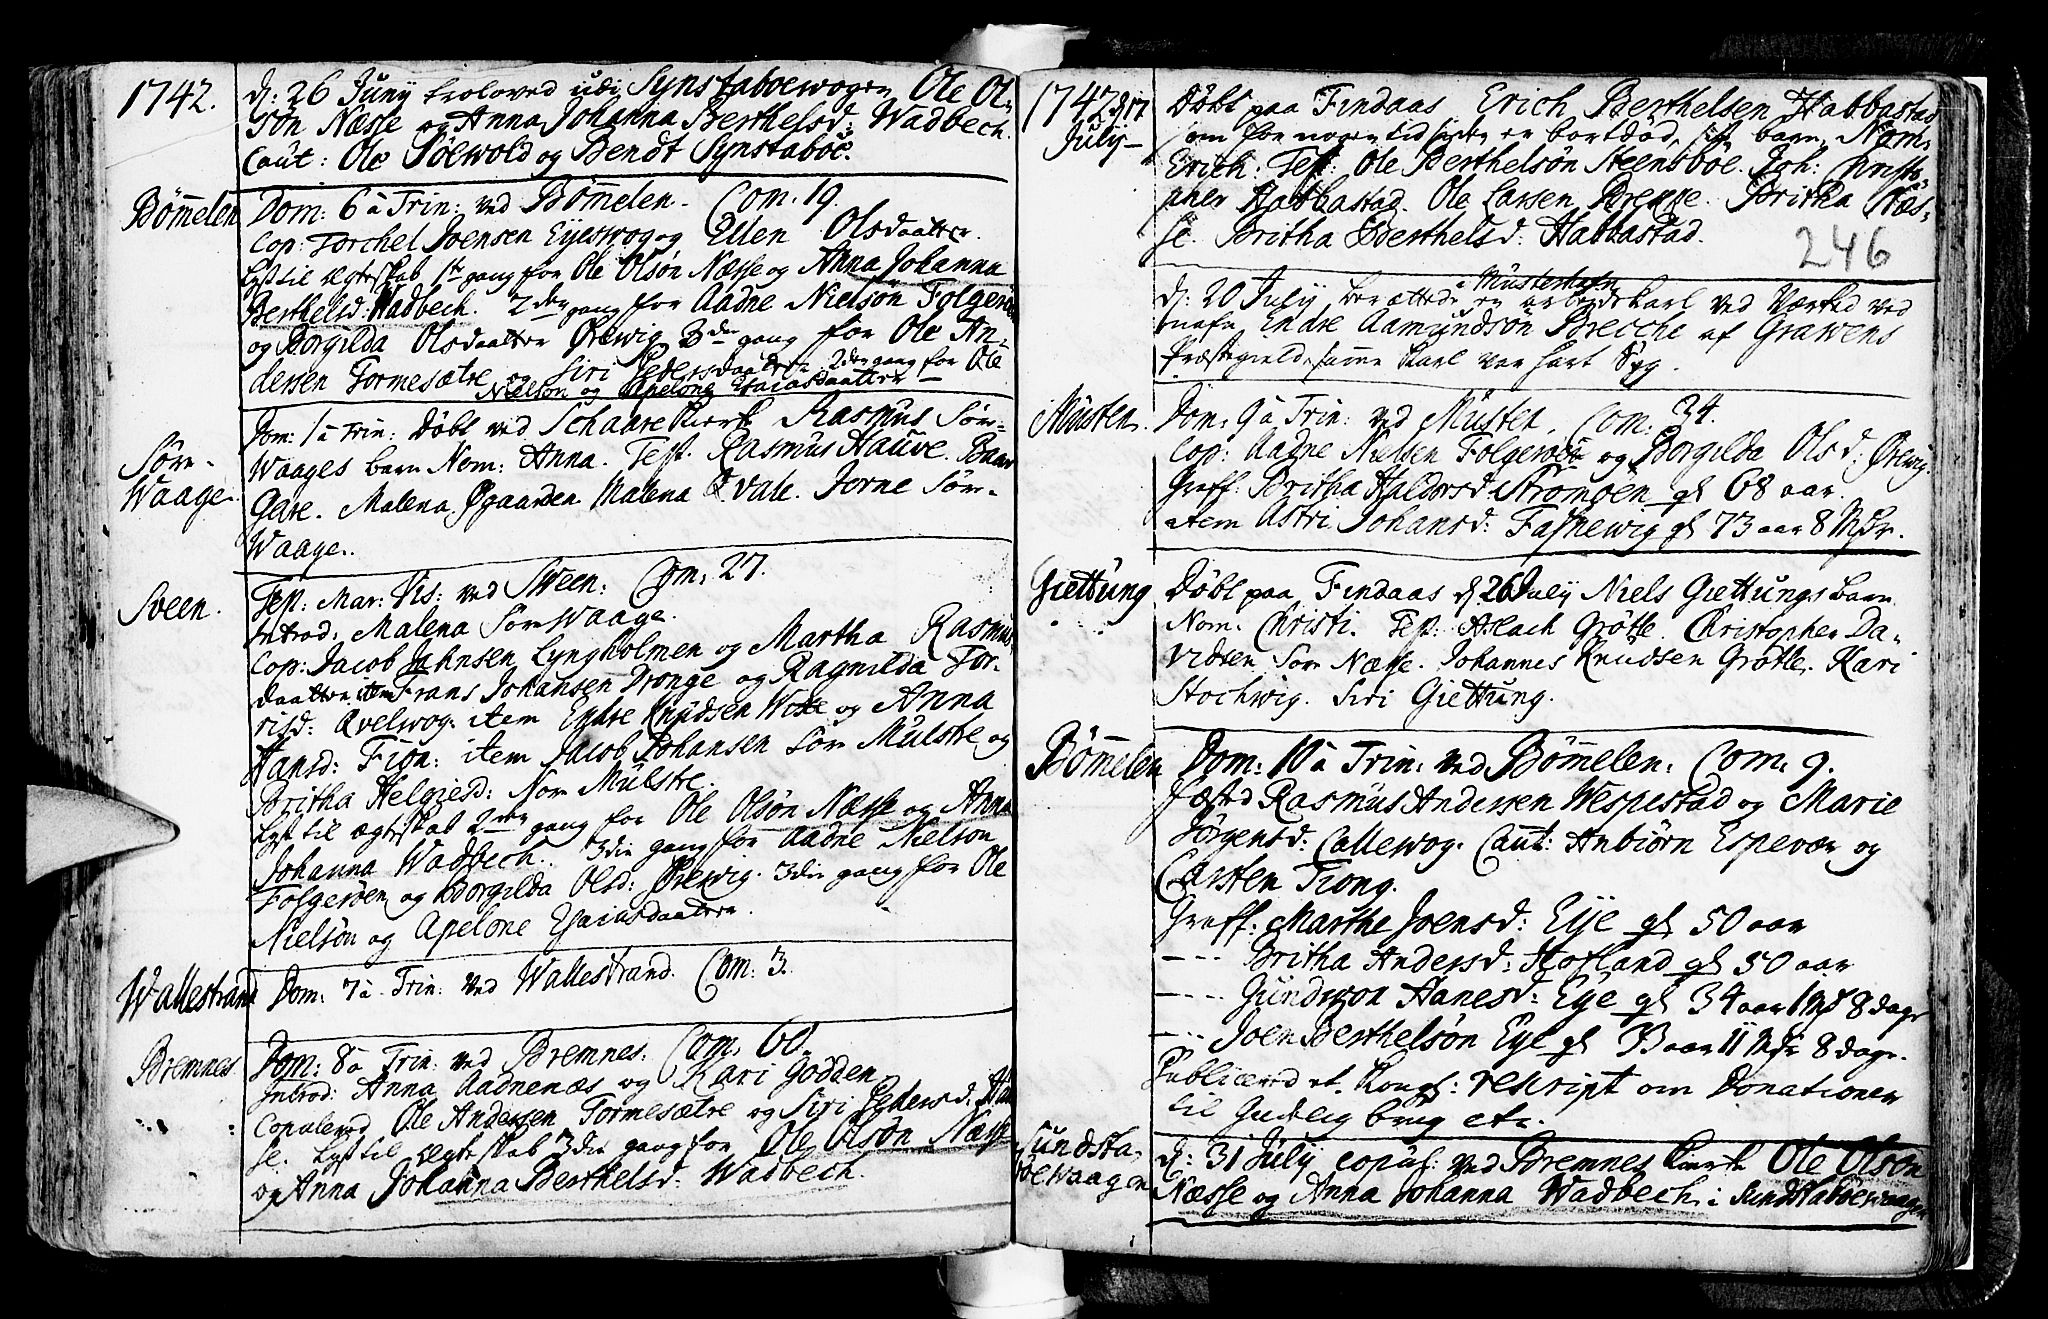 1742.
d: 26 Junij troloved udi Synstaboewogen Ole Ol-
son Næsse og Anna Johanna Berthelsd: Wadbech.
Caut: Ole Solwold og Bendt Synstaboe.
Bømmelen
Dom: 6 à Trin: ved Bømmelen. Com. 19.
Cop: Torchel Joensen Eyeswog og Ellen Olsdaatter.
Lyst til ægteskab 1ste gang for Ole Olsøn Næsse og Anna Johanna
Berthelsd: Wadbech. 2den gang for Aadne Nielson Folgerøe
og Borgilda Olsdaatter Ørewig 3die gang for Ole An-
dersen Tormesætre og Siri Pedersdaatter 2den gang for Ole
Nielson og Apelone Esaiasdaatter
Sør-
Waage.
Dom: 1 à Trin: Døbt ved Schaare Kierk Rasmus Sør-
Waages barn Nom: Anna. Test. Rasmus Hauve. Baar
Gare. Malena Øgaarden Malena Qvale. Jorne Sør-
Waage.
Sveen.
Fest: Mar: Vis: ved Sween: Com: 27.
Introd: Malena Sørwaage.
Cop: Jacob Jahnsen Lyngholmen og Martha Rasmus-
daatter item Frans Johansen Dronge og Ragnilda Tor-
risd: Qvelwog. item Endre Knudsen Wike og Anna
Hansd: Fion: item Jacob Johansen Sør Mulstre og
Britha Helgiesd: Nor Mulstre.
Lyst til ægteskab 2den gang for Ole Olsøn Næsse og Anna
Johanna Wadbech. 3die gang for Aadne Nielson
Folgerøen og Borgilda Olsd: Ørewig. 3die gang for Ole
Nielson og Apelone Esaiasdaatter.
Wallestrand
Dom: 7 à Trin: ved Wallestrand. Com: 3.
Bremnes
Dom: 8 à Trin: ved Bremnes. Com. 60.
Introd: Anna Aadnenæs og Kari Godden
Copulered Ole Andersen Tormesætre og Siri Pedersd:
se. Lyst til ægteskab 3die gang for Ole Olson Næsse
og Anna Johanna Berthelsd: Wadbech.
1742 d 17
July
Døbt paa Findaas Erich Berthelsen Habbastad
som for nogen tid siden er bortdød, sit barn Nom.
Erich: Test: Ole Berthelsøn Steensboe. Joh: Christo-
pher Habbastad. Ole Larsen Breppe. Britha Næs-
se. Britha Berthelsd: Habbastad.
246
d: 20 July berættede i Musterhafn en arbeidskarl ved Værket ved
nafn Endre Aamundsøn Brecche af Grawens
Præstegield, samme karl var hart Syg.
Musten.
Dom. 9 à Trin: ved Musten. Com: 34.
Cop: Aadne Nielsen Folgerøe og Borgilda Olsd: Ørewig.
Graff: Britha Haldorsd: Strømøen gl 68 aar.
item Astri Johansd: Fashewig gl 73 aar 8 Mdr.
Giettung
Døbt paa Findaas d. 26 July Niels Giettungs barn
Nom. Christi. Test: Aslach Grøtle. Christopher Da-
vidsen Sør Næsse. Johannes Knudsen Grøtle. Kari
Stochwig. Siri Giettung.
Bømmelen
Dom: 10 à Trin: ved Bømmelen: Com: 9.
fæsted Rasmus Andersen Wespestad og Marie
Jørgensd: Callewog. Caut: Anbiørn Espevær og
Carsten Tiong.
Graff: Marthe Joensd: Eye gl 50 aar
---- Britha Andersd: Hofland gl 50 aar
---- Gundwor Hanesd: Eye gl 34 aar 1 Md 8 dage
---- Joen Berthelsøn Eye gl 33 aar 11 Mdr 8 dage.
Publicered et Kongl: rescript om Donationer
til Gudelig brug etc.
Sundsta-
boewaagen
d: 31 July copul: ved Bremnes Kierk Ole Olson
Næsse og Anna Johanna Wadbech i Sundstaboewaagen